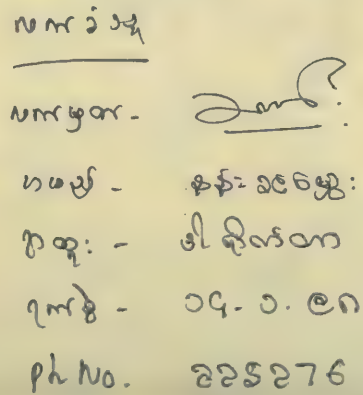 လက်ခံသူ
လက်မှတ် -
အမည် - နန်း
ရာထူး - ဒါရိုက်တာ
ရက်စွဲ - ၁၄.၁.၉၈
Ph No. 225276